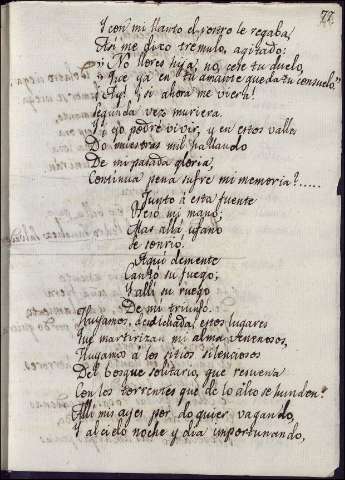 77.
Y con mi llanto el rostro le regaba,
Así me dixo tremulo, agitado:
"No llores hija, no, cese tu duelo,
"Que ya en tu amante queda tu consuelo."
¡Ay! Y si ahora me viera!
Segunda vez muriera.
Y yo podré vivir, y en estos valles
Do muestras mil hallando
De mi pasada gloria,
Continua pena sufre mi memoria?.....
Junto á esta fuente
Besó mi mano;
Mas allá ufano
se sonrió.
Aqui demente
Cantó su fuego;
Y allí su ruego
De mi triunfó.
Huyamos, desdichada, estos lugares
Que martirizan mi alma venenosos,
Huyamos á los sitios silenciosos
Del bosque solitario, que resuena
Con los torrentes que de lo alto se hunden.
Alli mis ayes por do quier vagando,
Y al cielo noche y dia importunando,